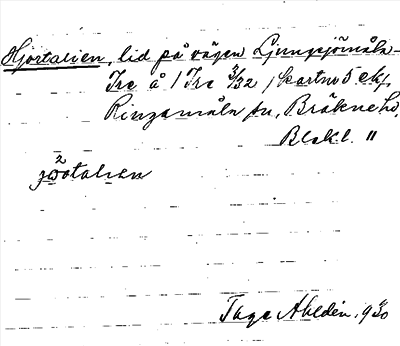 Hjortalien, lid på vägen Ljungsjömåla-
Tre å / Tre 3/32 / kartnr 5 ek/.
Ringamåla sn, Bräkne hd,
Blekl. ll
2
jwotalien
Tage Ahldén, 1930